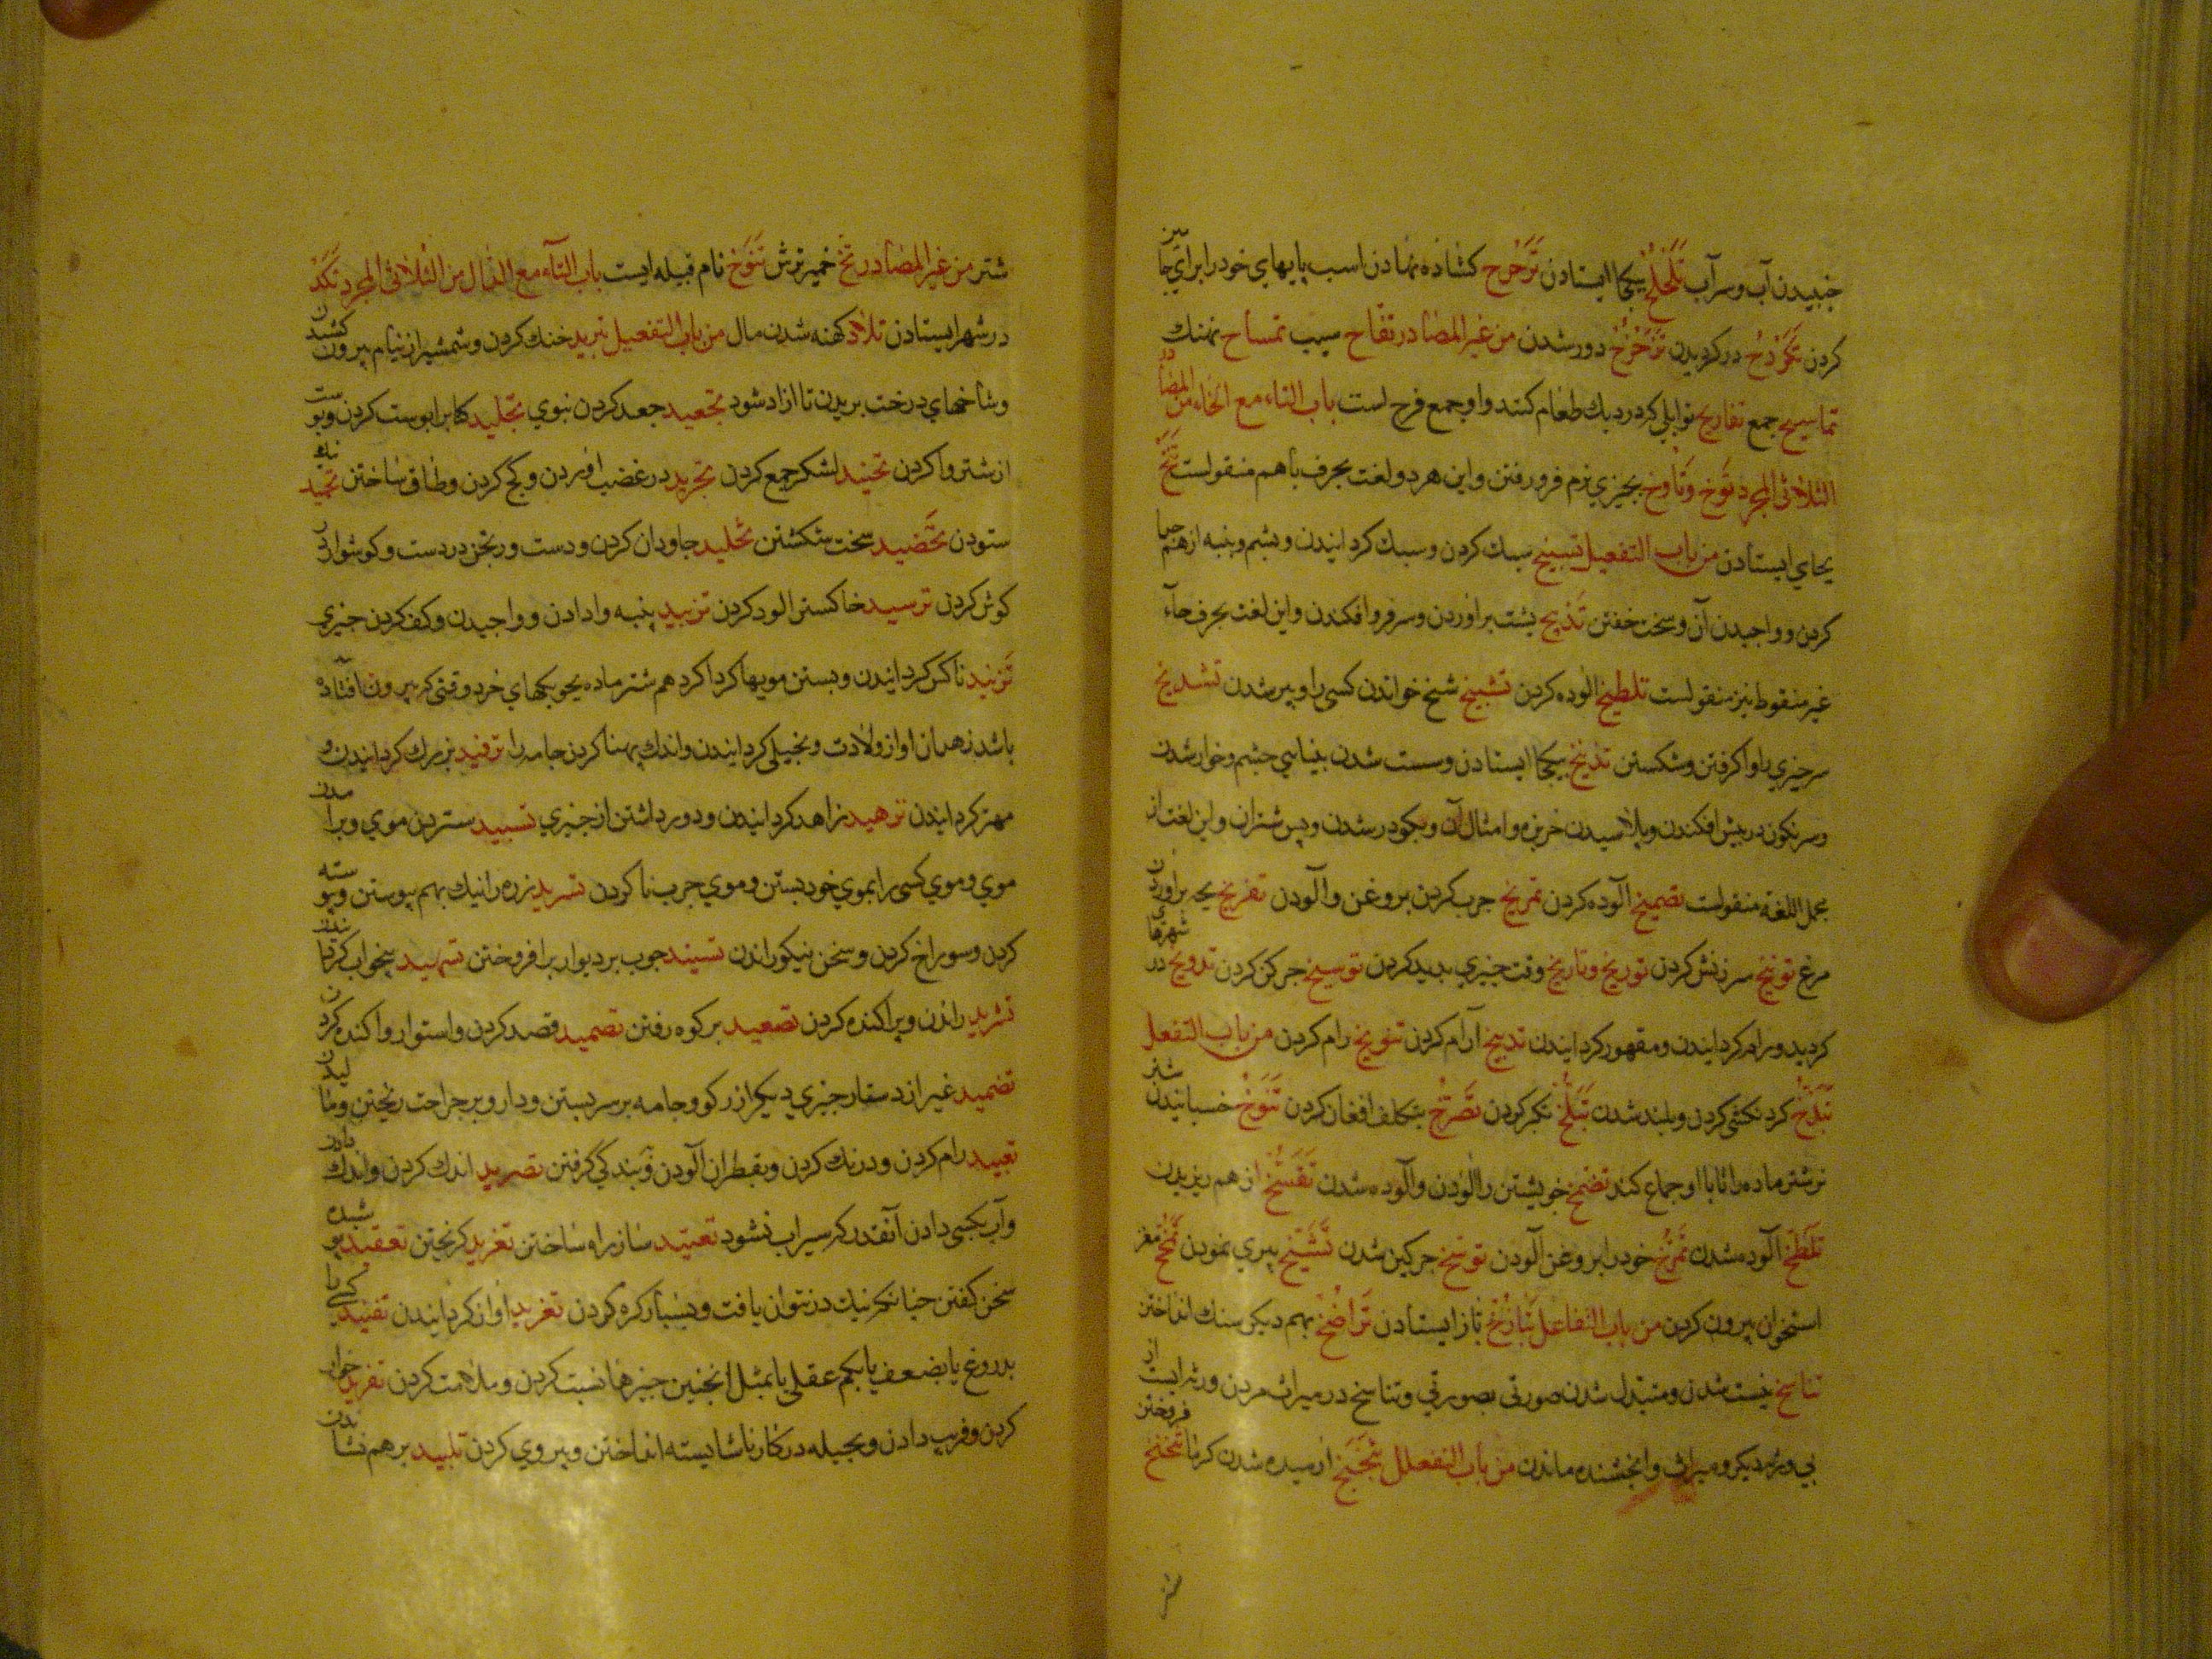 جنبیدن آب و سرآب تَلَحْلُحْ بیکجا ایستادن تَرَحْرُح کشاده نهادن اسب پایهای خود را برای
کردن تَكَرْدُحْ در کردیدن تَزَحْزُحْ دور شدن من غیر المصادر تفاح سیب تمساح نهنك
تماسیح جمع تفاریح توابلی که در دیك طعام کنند و او جمع فرح است باب التاء مع الخاء من المصادر
الثلاثی المجرد تَوَخ وَتَاوخ بچیزی نرم فرو رفتن و این هر دو لغت بحرف با هم منقولست
بجای ایستادن من باب التفعیل تسبیخ سبك کردن و سبك کردانیدن و پشم و پنبه از هم جدا
کردن و واچیدن آن و سخت خفتن تَذبیخ پشت بر اوردن و سر فرو افکندن و این لغت بحرف حآء
غیر منقوط نیز منقولست تلطیخ الوده کردن تشییخ شیخ خواندن کسی را و پیر شدن تشدیخ
سر چیزی را واکرفتن و شکستن تذنیخ بیکجا ایستادن و سست شدن بینایی چشم و خوار شدن
و سرنکون در پیش افکندن و پلاسیدن خربزه و امثال آن و بکو در شدن و پس شتران و این لغت از
مجمل اللغة منقولست تضمیخ آلوده کردن تمریخ چرب کردن بروغن و آلودن تفریخ بچه براوردن
مرغ توبیخ سرزنش کردن توریخ و تاریخ وقت چیزی بدید کردن توسیخ چرکن کردن تدویخ در شهرهای
کردید و رام کردانیدن و مقهور کردانیدن تدبیخ آرام کردن تنویخ رام کردن من باب التفعل
تَبَذُّخْ کردنکشی کردن و بلند شدن تَبَلُّخْ تکبر کردن تَصَرُّخْ بتکلف افغان کردن تَنَوُّخْ خسبانیدن شتر
نر شتر ماده را تا با او جماع کند تضمخ خویشتن را آلودن و آلوده شدن تَفَسُّخْ از هم ریزیدن
تَلَطُّخْ آلوده شدن تَمَرُّخْ خود را بروغن آلودن توسخ چرکین شدن تَشَيُّخْ پیری نمودن تَمَخُّخْ مغز
استخوان بیرون کردن من باب التفاعل تَبَازُخْ باز ایستادن تَرَاضُخْ بهم دیکر سنك انداختن
تناسخ نیست شدن و متبدل شدن صورتی بصورتی و تناسخ در میراث مردن ورثه ایست از
بی ورثهٔ دیکر و میراث وانخشنده ماندن من باب التفعلل تَبَخْبُخْ ارمیده شدن کرما
شتر من غیر المصادر تخ خمیر ترش تَنُوخ نام قبیله ایست باب التآء مع الدال من الثلاثی المجرد
در شهر ایستادن تلاد کهنه شدن مال من باب التفعیل تبرید خنك کردن و شمشیر از نیام بیرون کشیدن
و شاخهای درخت بریدن تا ازاد شود تجعید جعد کردن موی تجلید کتاب را پوست کردن و پوست
از شتر وا کردن تجنید لشکر جمع کردن تحرید در غضب اوردن و کج کردن و طاق ساختن تحمید
ستودن تخضید سخت شکستن تخلید جاودان کردن و دست ورنجن در دست و کوشوار در
کوش کردن ترمید خاکستر الود کردن تزبید پنبه وا دادن و واچیدن و کف کردن چیزی
تَزنید ناکس کردانیدن و بستن مویها کرداکرد هم شتر ماده بچوبکهای خرد وقتی که بیرون افتاده
باشد زهدان او از ولادت و بخیلی کردانیدن و اندك پهنا کردن جامه را ترفید بزرك کردانیدن و
مهتر کردانیدن تزهید زاهد کردانیدن و دور داشتن از چیزی تسبید ستردن موی و برامدن
موی و موی کسی را بموی خود بستن و موی چرب نا کردن تسرید زره را نیك بهم پیوستن و پیوسته
کردن و سوراخ کردن و سخن نیکو راندن تسنید چوب بر دیوار برافروختن تسهید بیخواب
تشرید راندن و پراکنده کردن تصعید بر کوه رفتن تصمید قصد کردن و استوار واکنده کردن
تضمید غیر از دستار چیزی دیکر از رکو و جامه بر سر بستن و دارو بر جراحت ریختن و مالیدن
تعبید رام کردن و درنك کردن و بقطران آلودن و بندکی کرفتن تصرید اندك کردن و اندك دادن
و آب بکسی دادن آنقدر که سیراب نشود تعتید ساز راه ساختن تعرید کریختن تعقید پوشیده
سخن کفتن چنانکه نیك در نتوان یافت و بسیار کره کردن تغرید اواز کردانیدن تفنید کسی را
بدروغ یا بضعف یا بکم عقلی یا بمثل انچنین چیزها نسبت کردن و ملامت کردن
کردن و فریب دادن و بحیله در کار ناشایسته انداختن و پیروی کردن تلبید بر هم نشاندن